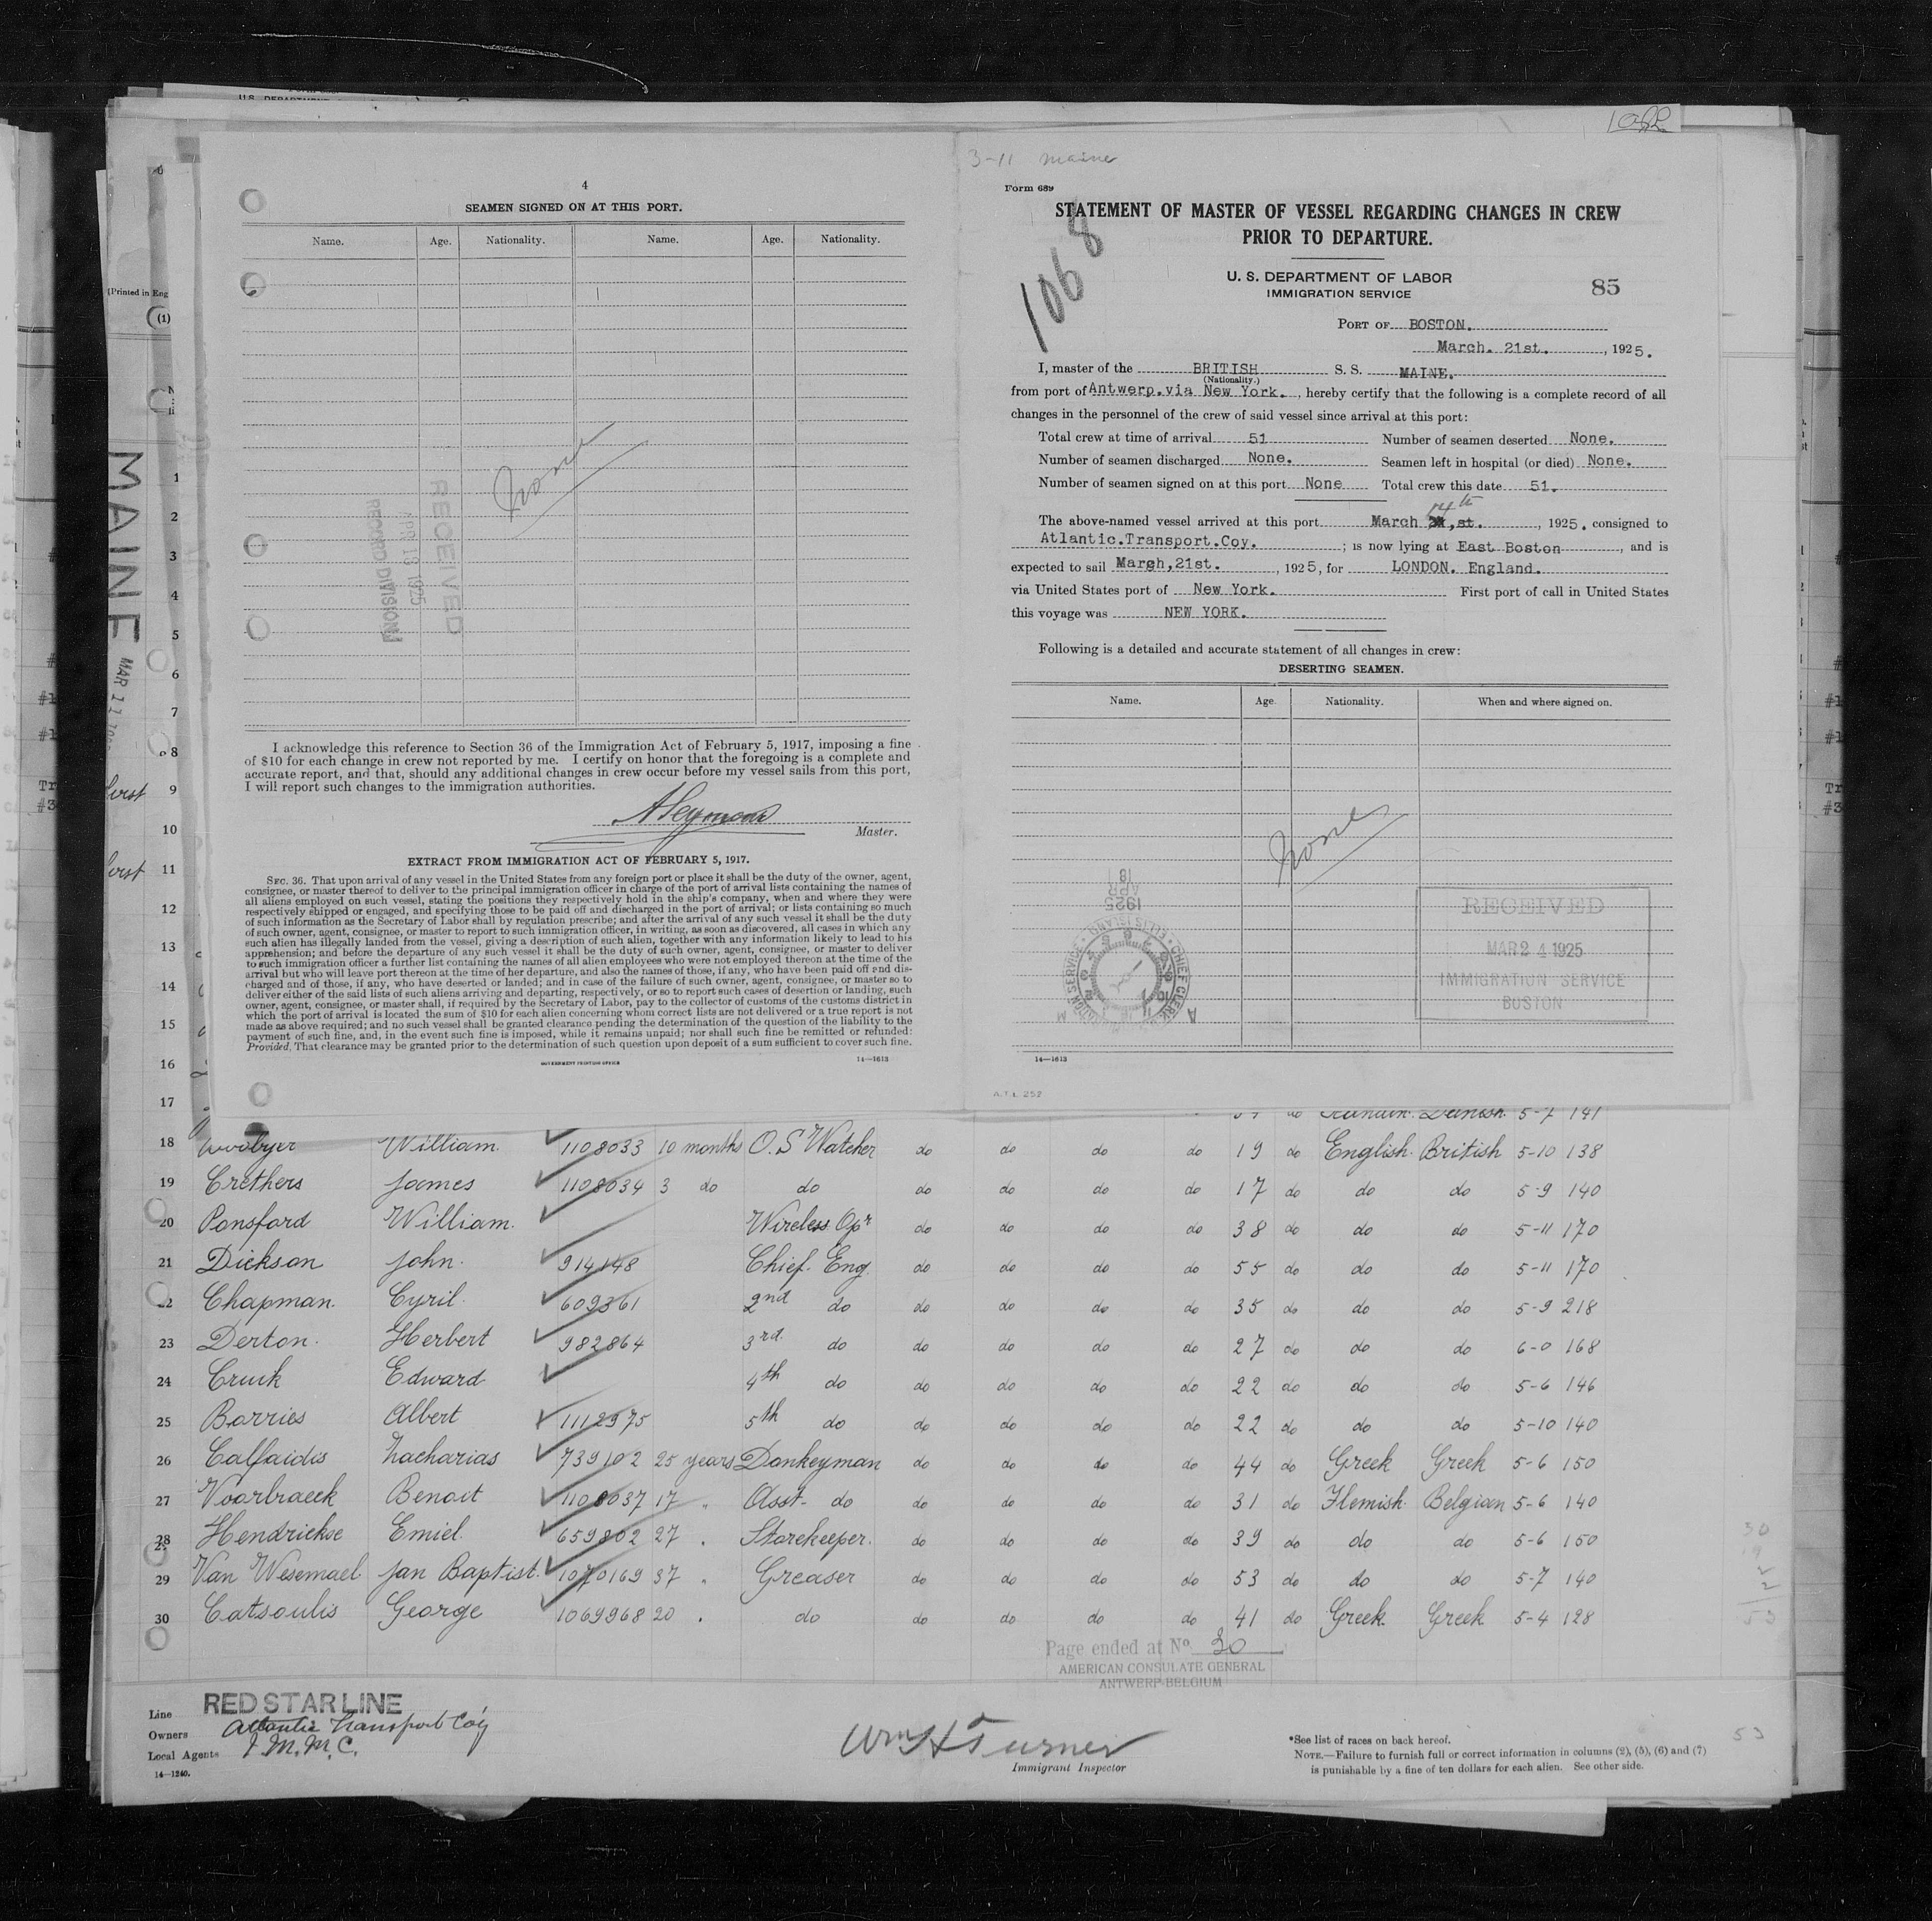 4
SEAMEN SIGNED ON AT THIS PORT.
Name. Age. Nationality. Name. Age. Nationality.
None
RECEIVED
APR 13 1925
RECORD DIVISION
I acknowledge this reference to Section 36 of the Immigration Act of February 5, 1917, imposing a fine
of $10 for each change in crew not reported by me. I certify on honor that the foregoing is a complete and
accurate report, and that, should any additional changes in crew occur before my vessel sails from this port,
I will report such changes to the immigration authorities.
Master.
EXTRACT FROM IMMIGRATION ACT OF FEBRUARY 5, 1917.
SEC. 36. That upon arrival of any vessel in the United States from any foreign port or place it shall be the duty of the owner, agent,
consignee, or master thereof to deliver to the principal immigration officer in charge of the port of arrival lists containing the names of
all aliens employed on such vessel, stating the positions they respectively hold in the ship's company, when and where they were
respectively shipped or engaged, and specifying those to be paid off and discharged in the port of arrival; or lists containing so much
of such information as the Secretary of Labor shall by regulation prescribe; and after the arrival of any such vessel it shall be the duty
of such owner, agent, consignee, or master to report to such immigration officer, in writing, as soon as discovered, all cases in which any
such alien has illegally landed from the vessel, giving a description of such alien, together with any information likely to lead to his
apprehension; and before the departure of any such vessel it shall be the duty of such owner, agent, consignee, or master to deliver
to such immigration officer a further list containing the names of all alien employees who were not employed thereon at the time of the
arrival but who will leave port thereon at the time of her departure, and also the names of those, if any, who have been paid off and dis-
charged and of those, if any, who have deserted or landed; and in case of the failure of such owner, agent, consignee, or master so to
deliver either of the said lists of such aliens arriving and departing, respectively, or so to report such cases of desertion or landing, such
owner, agent, consignee, or master shall, if required by the Secretary of Labor, pay to the collector of customs of the customs district in
which the port of arrival is located the sum of $10 for each alien concerning whom correct lists are not delivered or a true report is not
made as above required; and no such vessel shall be granted clearance pending the determination of the question of the liability to the
payment of such fine, and, in the event such fine is imposed, while it remains unpaid; nor shall such fine be remitted or refunded:
Provided, That clearance may be granted prior to the determination of such question upon deposit of a sum sufficient to cover such fine.
GOVERNMENT PRINTING OFFICE 14—1613
3-11 maine
Form 689
1068
STATEMENT OF MASTER OF VESSEL REGARDING CHANGES IN CREW
PRIOR TO DEPARTURE.
U. S. DEPARTMENT OF LABOR
IMMIGRATION SERVICE
85
PORT OF BOSTON.
March. 21st. , 1925.
I, master of the BRITISH S. S. MAINE.
(Nationality.)
from port of Antwerp.via New York. , hereby certify that the following is a complete record of all
changes in the personnel of the crew of said vessel since arrival at this port:
Total crew at time of arrival 51 Number of seamen deserted None.
Number of seamen discharged None. Seamen left in hospital (or died) None.
Number of seamen signed on at this port None Total crew this date 51.
The above-named vessel arrived at this port March 14th ,st. , 1925. consigned to
Atlantic.Transport.Coy. ; is now lying at East Boston , and is
expected to sail March,21st. , 1925, for LONDON. England.
via United States port of New York. First port of call in United States
this voyage was NEW YORK.
Following is a detailed and accurate statement of all changes in crew:
DESERTING SEAMEN.
Name. Age. Nationality. When and where signed on.
None
1925
APR
18
RECEIVED
MAR 24 1925
IMMIGRATION SERVICE
BOSTON
14—1613
A.T.L. 252
(Printed in Eng
(1)
MAINE
MAR 11
1
2
3
4
5
6
7
8
9
10
11
12
13
14
15
16
17 do Danish 5-7 141
18 William. 1108033 10 months O.S Watcher do do do do 19 do English. British 5-10 138
19 Crethers James 1108034 3 do do do do do do 17 do do do 5-9 140
20 Ponsford William. Wireless Opr do do do do 38 do do do 5-11 170
21 Dickson John. 914148 Chief. Eng. do do do do 55 do do do 5-11 170
22 Chapman. Cyril. 609361 2nd do do do do do 35 do do do 5-9 218
23 Derton. Herbert 982864 3rd. do do do do do 27 do do do 6-0 168
24 Cruik Edward 4th do do do do do 22 do do do 5-6 146
25 Barries Albert 1112975 5th do do do do do 22 do do do 5-10 140
26 Calfaidis Zacharias 739102 25 years Donkeyman do do do do 44 do Greek Greek 5-6 150
27 Voorbraeck Benoit 1108037 17 " Asst- do do do do do 31 do Flemish. Belgian 5-6 140
28 Hendrickse Emiel. 659802 27 . Storekeeper. do do do do 39 do do do 5-6 150
29 Van Wesemael. Jan Baptist. 1070169 37 " Greaser do do do do 53 do do do 5-7 140
30 Catsoulis George 1069968 20 . do do do do do 41 do Greek. Greek 5-4 128
Page ended at No. 30
AMERICAN CONSULATE GENERAL
ANTWERP-BELGIUM
Line RED STAR LINE
Owners Atlantic Transport Coy
Local Agents I.M.M.C.
14—1240.
Wm H Turner
Immigrant Inspector
*See list of races on back hereof.
NOTE.—Failure to furnish full or correct information in columns (2), (5), (6) and (7)
is punishable by a fine of ten dollars for each alien. See other side.
53